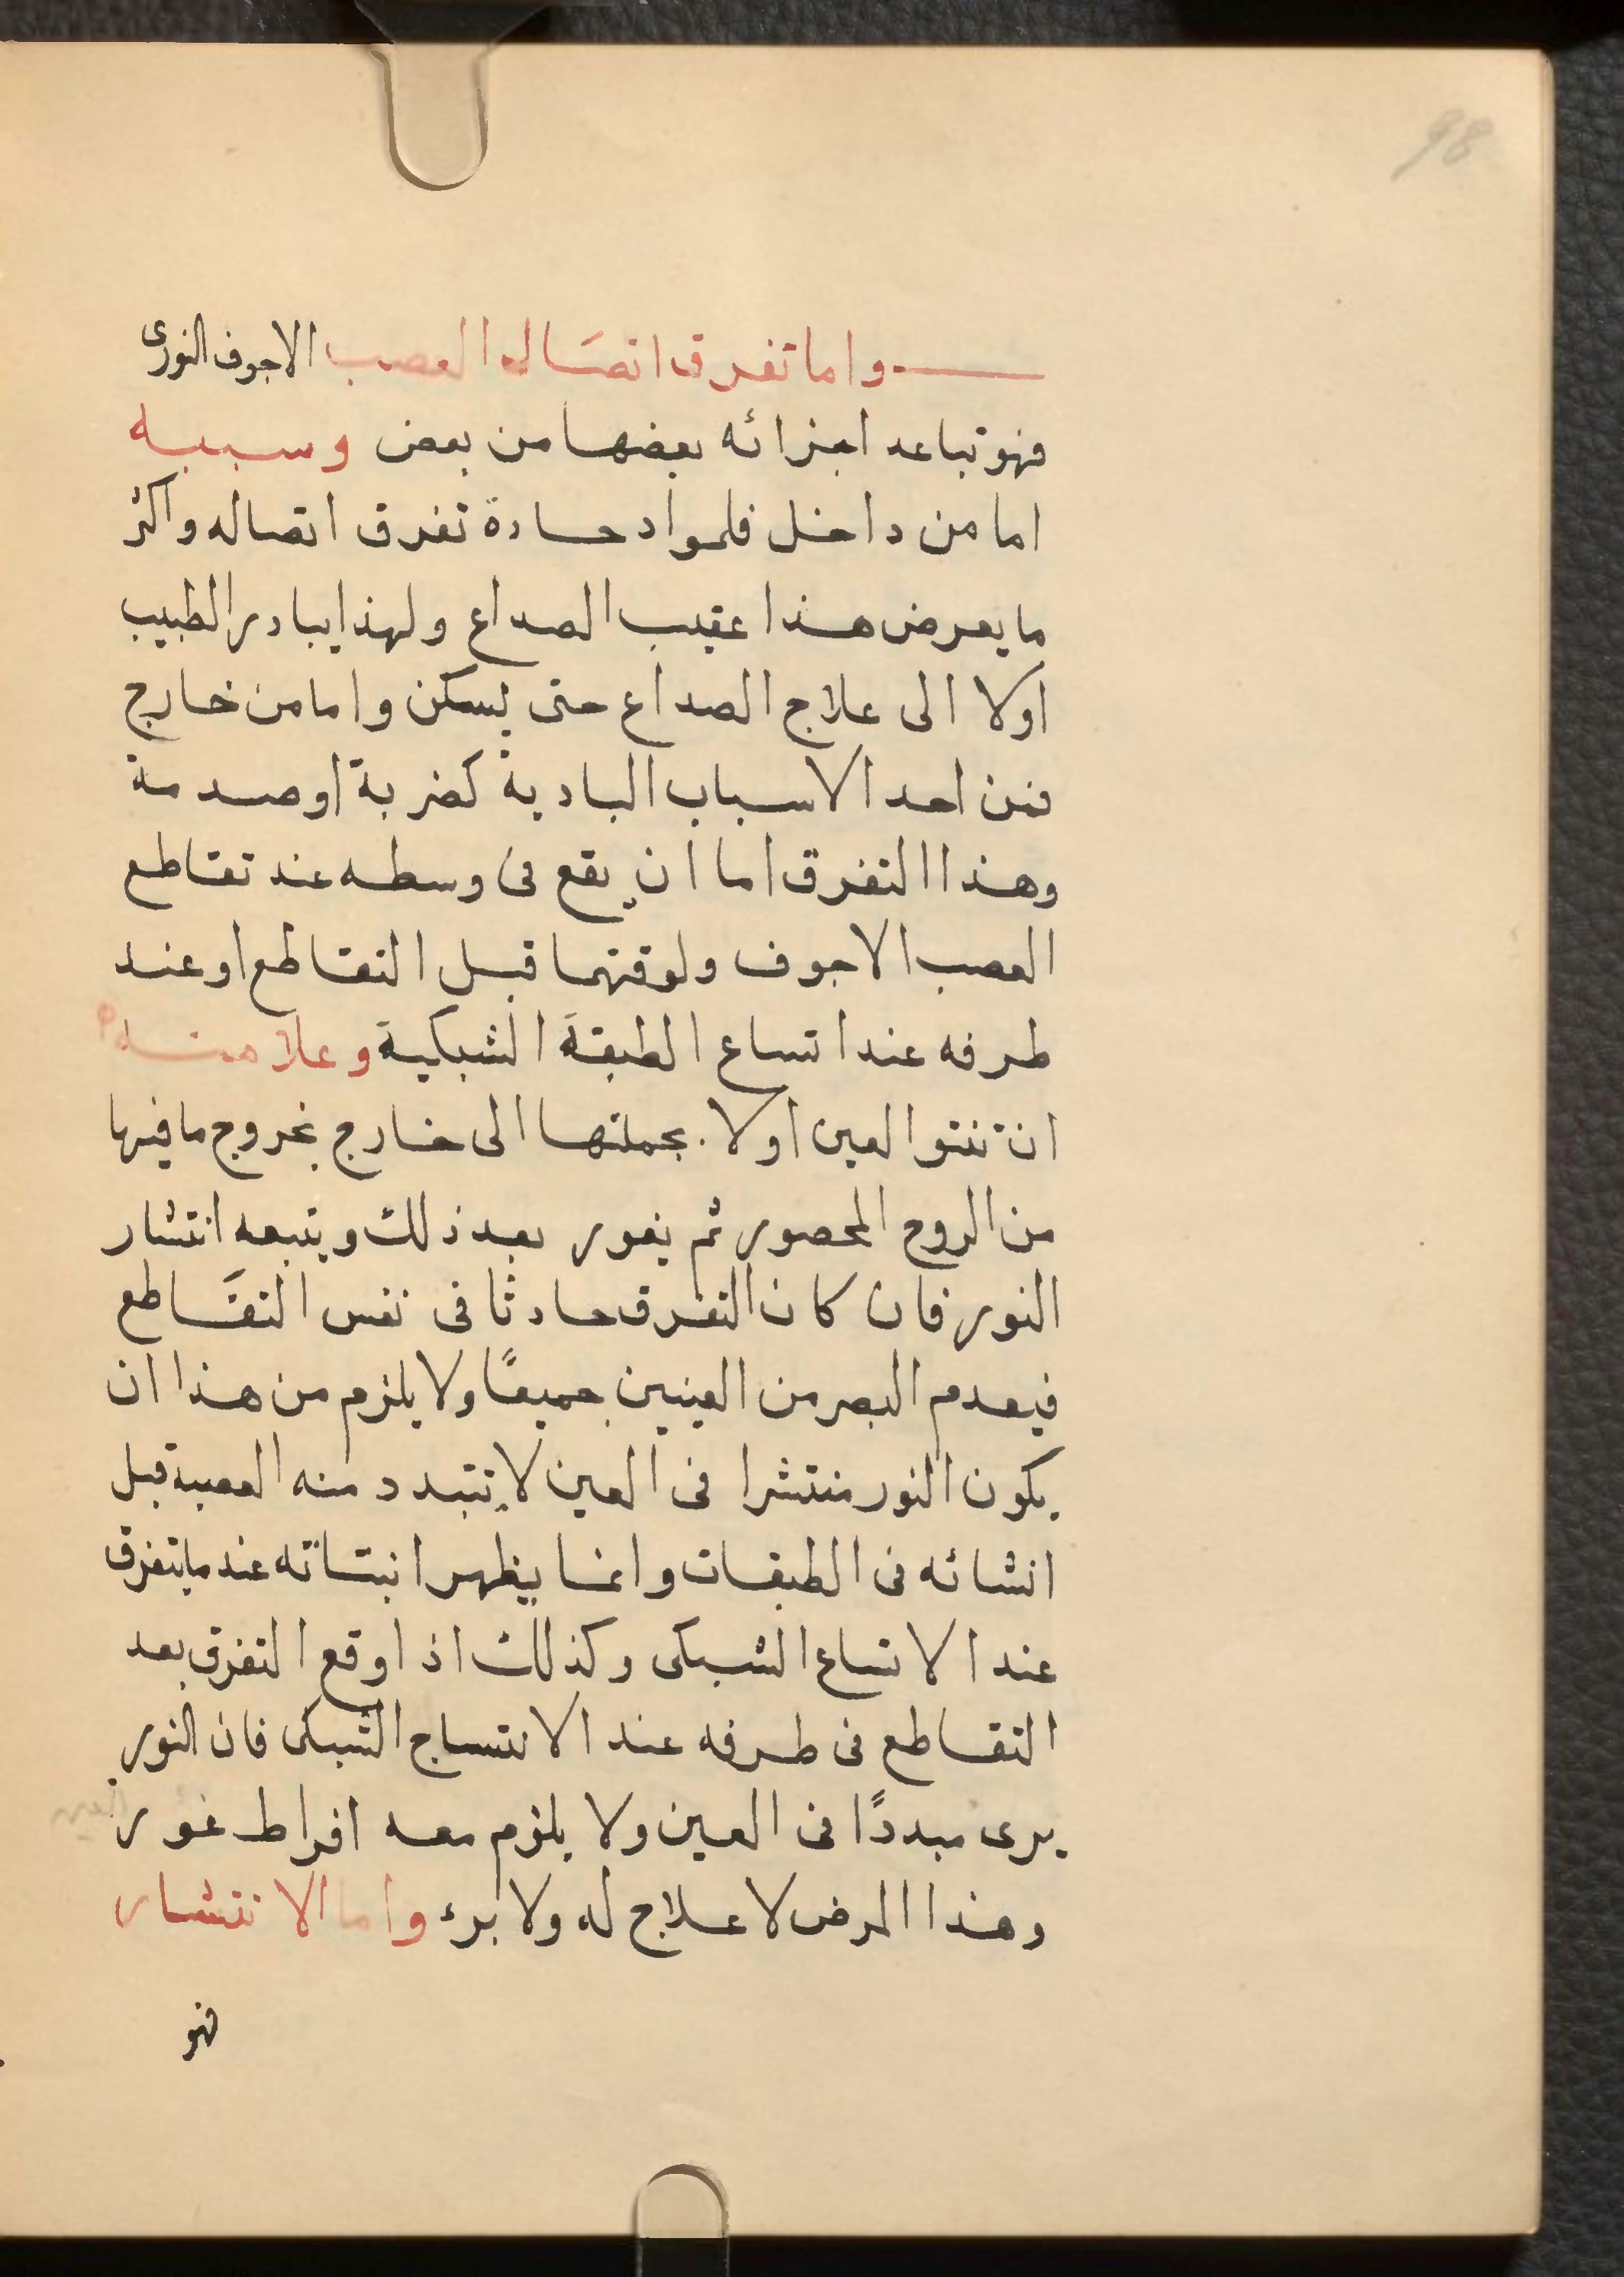 98
واما تفرق اتصَال العصب الاجوف النورى
فهو تباعد اجزائه بعضها من بعض وسببه
اما من داخل فلمواد حادة تفرق اتصاله واكثر
ما يعرض هذا عقيب الصداع ولهذا يبادر الطبيب
اولا الى علاج الصداع حتى يسكن واما من خارج
فمن احد الاسباب البادية كضربة او صدمة
وهذا التفرق اما ان يقع فى وسطه عند تقاطع
العصب الاجوف ولوقتهما قبل التقاطع او عند
طرفه عند اتساع الطبقة الشبكية وعلامته
ان تنتو العين اولا بجملتها الى خارج بخروج ما فيها
من الروح المحصور ثم يغور بعد ذلك ويتبعه انتشار
النور فان كان التفرق حادثا فى نفس التقَاطع
فيعدم البصر من العينين جميعًا ولا يلزم من هذا ان
يكون النور منتشرا فى العين لا يتبدد منه العصبية قبل
انشائه فى الطبقات وانما يظهر انبتاته عند ما يتفرق
عند الاتساع الشبكى وكذلك اذا وقع التفرق بعد
التقاطع فى طرفه عند الانتساج الشبكى فان النور
يرى مبددًا فى العين ولا يلزم معه افراط غور
وهذا المرض لا علاج له ولا برء واما الانتشار
فهو